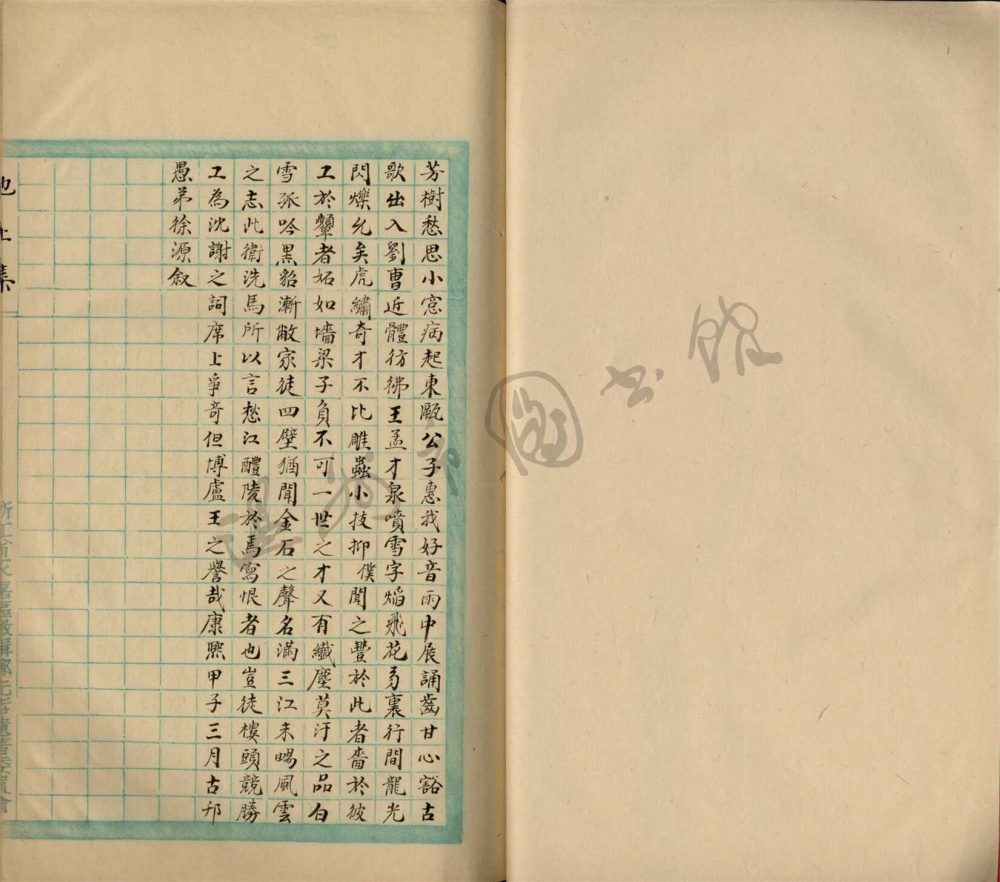 芳樹愁思小窓病起東甌公子惠我好音雨中展誦齒甘心豁古
歌出入劉曹近體彷彿王孟才泉噴雪字焰飛花男裏行間龍光
閃爍允矣虎繡奇才不比雕蟲小技抑僕聞之豐於此者嗇於彼
工於顰者妬如墻梁子負不可一世之才又有纖塵莫汙之品白
雪孤吟黑貂漸敝家徒四壁猶聞金石之聲名滿三江未暢風雲
之志此衛洗馬所以言愁江醴陵於焉寫恨者也豈徒樓頭競勝
工為沈謝之詞席上爭奇但博盧王之譽哉康熙甲子三月古邗
愚弟徐源敘
集
圖書館